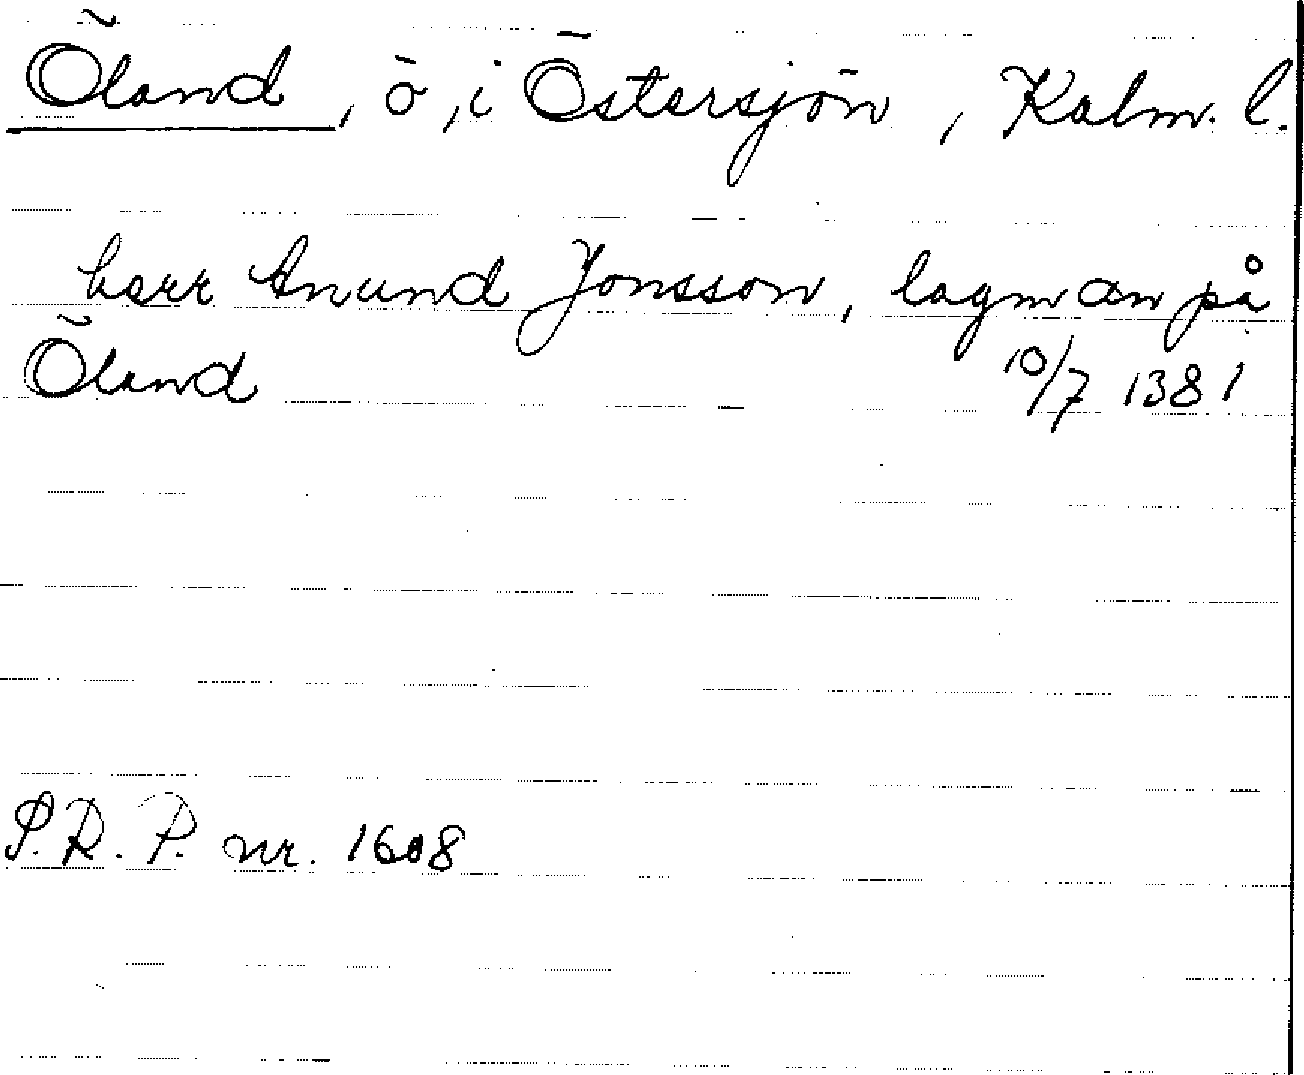 Öland, ö, i Östersjön, Kalm. l.
herr Anund Jonsson, lagman på
Öland 10/7 1381
S.R.P. nr. 1608